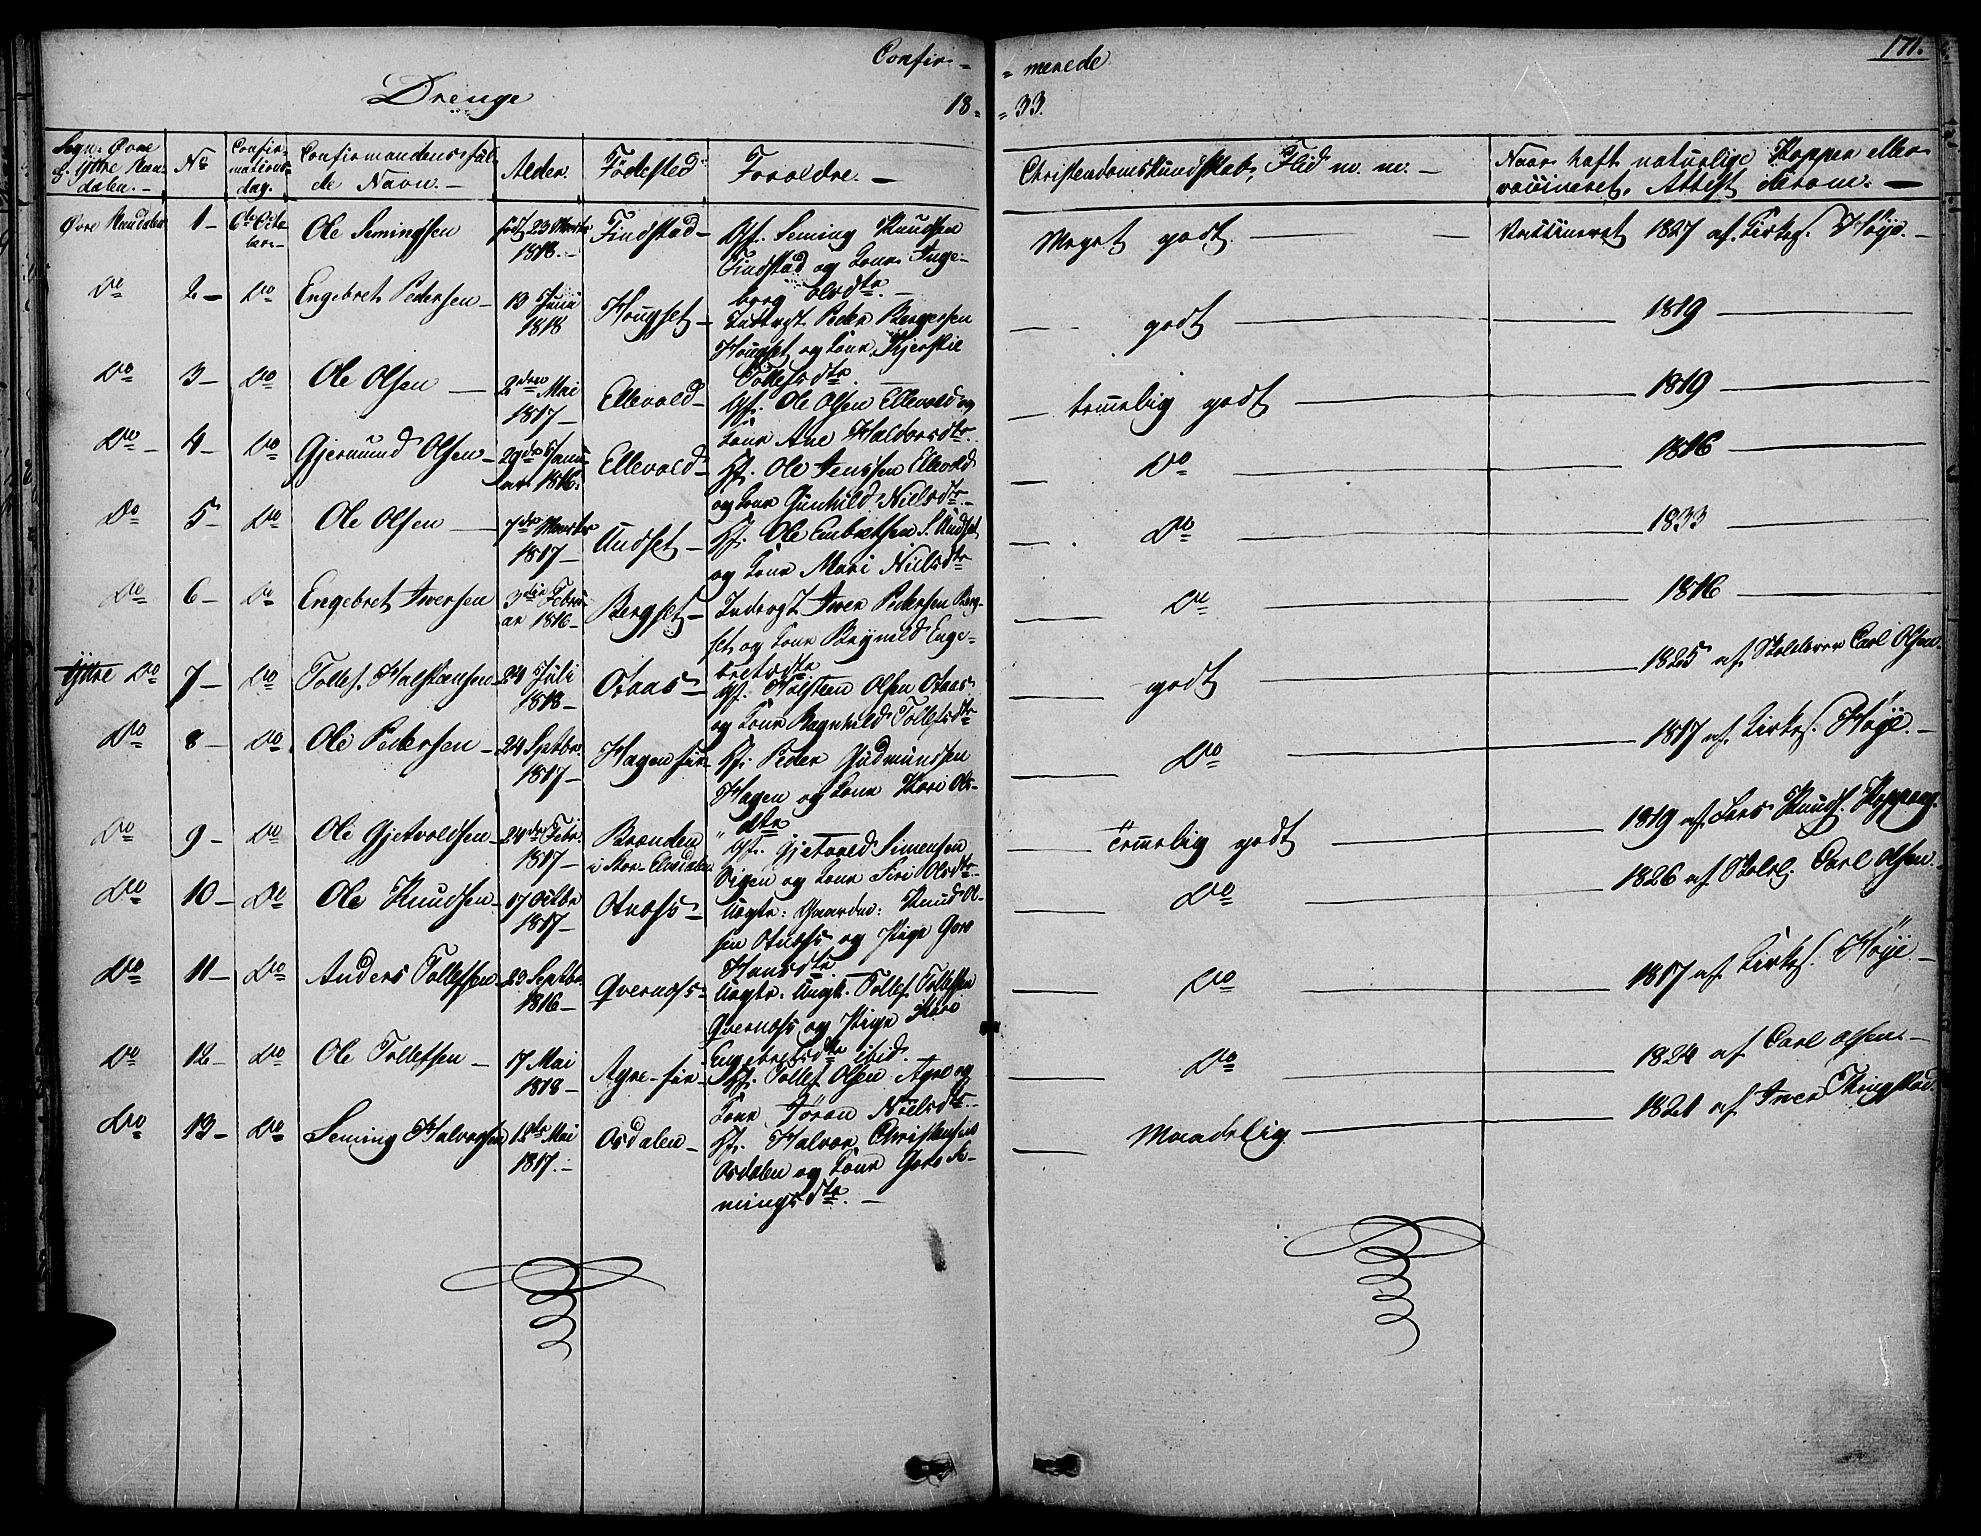 Confir- - merede 171.
Drenge 18- - 33.
Sogn. Øvre & Yttre Rendalen. - | No | Confirmations dag. | Confirmandens fulde Navn. - | Alder. | Fødested | Forældre. - | Christendomskundskab, Flid m. m. - | Naar haft naturlige Kopper eller vaccineret, Attest derom. -
Øvre Rendalen | 1 - | 6te Octobere - | Ole Semingsen | født 29 Marts 1818. - | Findstad - | Gf. Seming Knudsen Findstad og Kone Ingeborg Olsdtr. - | Meget godt. - | Vaccineret 1827 af Kirkes. Høye. -
Do | 2 - | Do | Engebret Pedersen - | 13 Juni 1818 | Hougset - | Inderst Peder Bergersen Hougset og Kone Kjerstie Tollefsdtr. | godt | 1819
Do | 3 - | Do | Ole Olsen - | 2den Mai 1817 - | Ellevold - | Gf. Ole Olsen Ellevold og Kone Ane Haldorsdtr. | temelig godt | 1819
Do - | 4 - | Do | Gjermund Olsen - | 29de Januar 1816. | Ellevold - | Hf. Ole Jenssen Ellevold og Kone Gunhild Nielsdtr. - | Do | 1816
Do | 5 - | Do | Ole Olsen - | 7de Marts 1817 - | Undset - | Hf. Ole Embretsen S. Undset og Kone Mari Nielsdtr | Do | 1833
Do | 6 - | Do | Engebret Iversen | 3die Februar 1816 - | Bergset - | Inderst Iver Pedersen Bergset og Kone Brynild Engebretsdtr | Do | 1816
Yttre Do | 7 - | Do | Tollef Halstensen - | 24 Juli 1818 - | Otaas - | Gf. Holsteen Olsen Otaas og Kone Ragnhild Tollefsdtr | godt | 1825 af Skolelærer Carl Olsen.
Do | 8 - | Do | Ole Pedersen - | 24 Septbr. 1817 - | Hagen | Hf. Peder Gudmundsen Hagen og Kone Kari Olsdtr | Do | 1817 af Kirkes. Høye. -
Do | 9 - | Do | Ole Gjetvoldsen - | 24de Febr. 1817 - | Brænden i Stor-Elvedalen | Gf. Gjetvold Simensen og Kone Siri Olsdtr. - | Temelig godt | 1819 af Lars Knuds. Koppang.
Do | 10 - | Do | Ole Knudsen - | 17 Octbr 1817 - | Otnæss - | Uægte: Knud Olsen Otnæss og Pige Goro Hansdtr. | Do | 1826 af Skolel. Carl Olsen. -
Do | 11 - | Do | Anders Tollefsen - | 23 Septbr. 1816 - | Qvernæss - | Uægte. Ungk. Tollef Tollefsen Qvernæss og Pige Kari Engebretsdtr ibid. | Do | 1817 af Kirkes. Høye -
Do | 12 - | Do | Ole Tollefsen - | 17 Mai 1818 - | | Hf. Tollef Olsen og Kone Jøran Nielsdtr. | Do | 1824 af Carl Olsen. -
Do | 13 - | Do | Seming Halvorsen | 12te Mai 1817. - | Osdalen - | Hf. Halvor Christensen Osdalen og Kone Goro Semingsdtr. - | Maadelig | 1821 af Iver Tingstad.